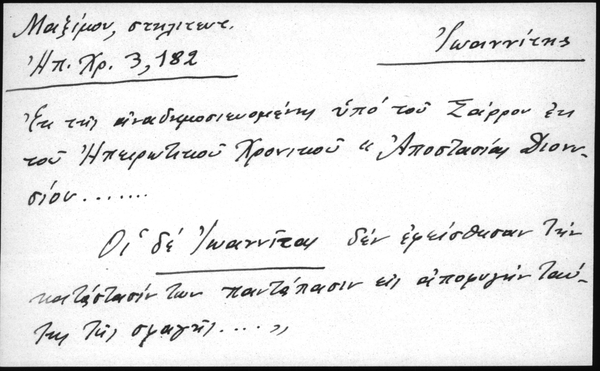 Μαξίμου, στηλιτευτ.
Ἠπ. Χρ. 3, 182
Ἰωαννίτης
Ἐκ τῆς ἀναδημοσιευομένης ὑπό τοῦ Σάρρου ἐκ
τοῦ Ἠπειρωτικοῦ Χρονικοῦ "Ἀποστασίας Διονυ-
σίου.......
Οἱ δέ Ἰωαννῖται δέν ἐφείσθησαν τήν
κατάστασίν των παντάπασιν εἰς ἀποφυγήν ταύ-
της τῆς σφαγῆς...."